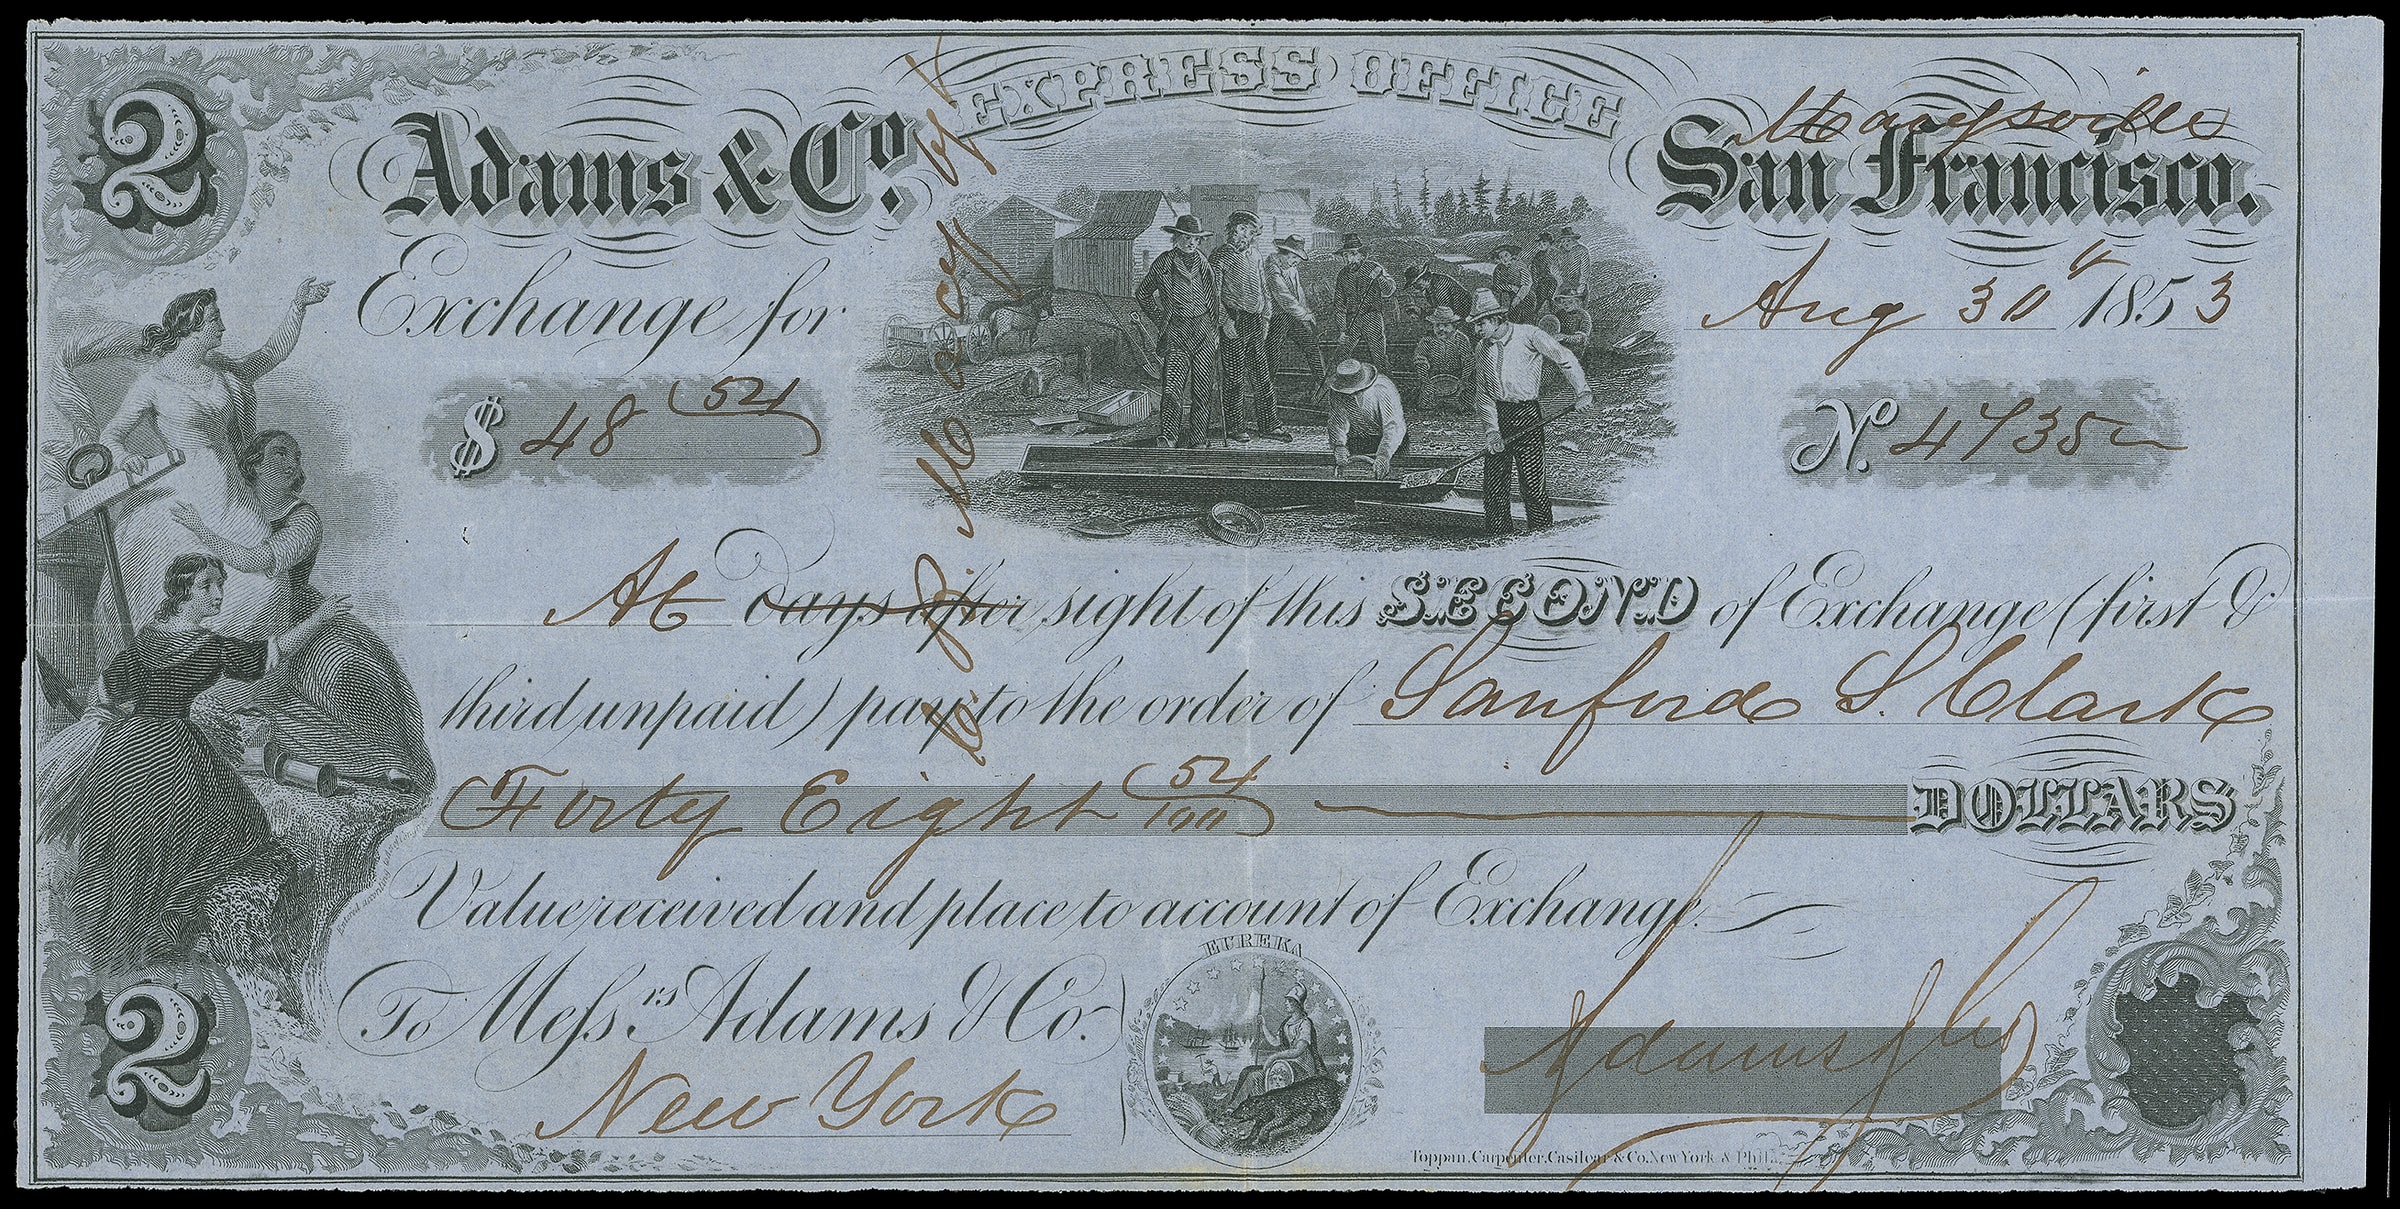 2
EXPRESS OFFICE
Adams & Co.
Marysville
San Francisco.
Exchange for
Aug 30 1853
$ 48 54
No. 4735
At days after sight of this SECOND of Exchange (first &
third unpaid) pay to the order of Sanford S. Clark
Forty Eight 54/100 DOLLARS
Value received and place to account of Exchange.
EUREKA
To Messrs. Adams & Co.
New York
Adams & Co
2
Toppan, Carpenter, Casilear & Co. New York & Phil.